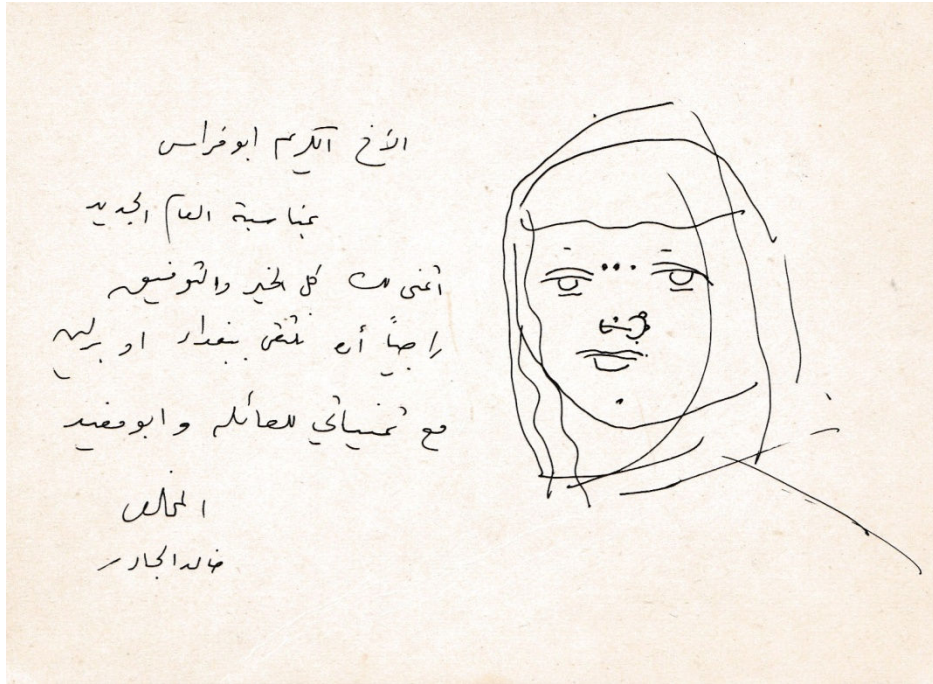 الأخ الكريم ابو فراس
بمناسبة العام الجديد
اتمنى لك كل الخير والتوفيق
راجياً أن نلتقي ببغداد او برلين
مع تمنياتي للعائلة وابو مفيد
المخلص
خالد الجادر